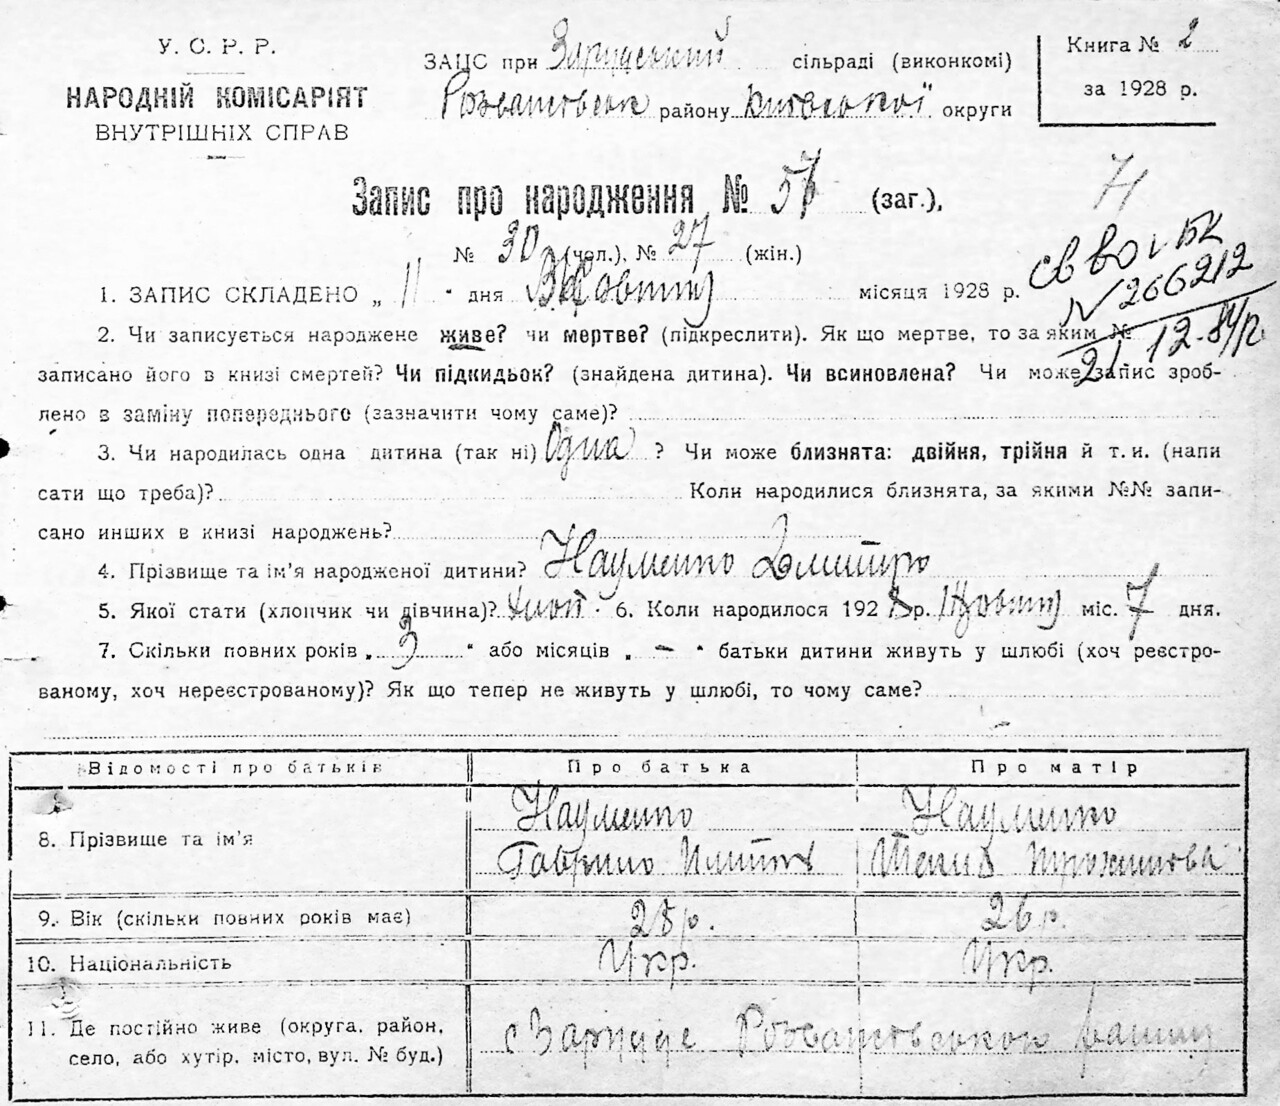 У. С. Р. Р.
НАРОДНІЙ КОМІСАРІЯТ
ВНУТРІШНІХ СПРАВ
ЗАЦС при сільраді (виконкомі)
району Київської округи
Книга № 2
за 1928 р.
Запис про народження № 57 (заг.),
71
№ 30 (чол.), № 27 (жін.)
св во І БК
№ 266212
21.12.84 р
1. ЗАПИС СКЛАДЕНО „ 11 " дня Жовтня місяця 1928 р.
2. Чи записується народжене живе? чи мертве? (підкреслити). Як що мертве, то за яким №
записано його в книзі смертей? Чи підкидьок? (знайдена дитина). Чи всиновлена? Чи може запис зроб-
лено в заміну попереднього (зазначити чому саме)?
3. Чи народилась одна дитина (так ні) Одна ? Чи може близнята: двійня, трійня й т. и. (напи
сати що треба)? Коли народилися близнята, за якими №№ запи-
сано инших в книзі народжень?
4. Прізвище та ім'я народженої дитини? Науменко Дмитро
5. Якої стати (хлопчик чи дівчина)? хлоп. 6. Коли народилося 1928 р. Жовтня міс. 7 дня.
7. Скільки повних років „ 3 " або місяців „ – " батьки дитини живуть у шлюбі (хоч реєстро-
ваному, хоч нереєстрованому)? Як що тепер не живуть у шлюбі, то чому саме?
Відомості про батьків Про батька Про матір
8. Прізвище та ім'я Науменко Науменко
Гаврило Трохимова
9. Вік (скільки повних років має) 28 р. 26 р.
10. Національність Укр. Укр.
11. Де постійно живе (округа, район,
село, або хутір, місто, вул. № буд.) с